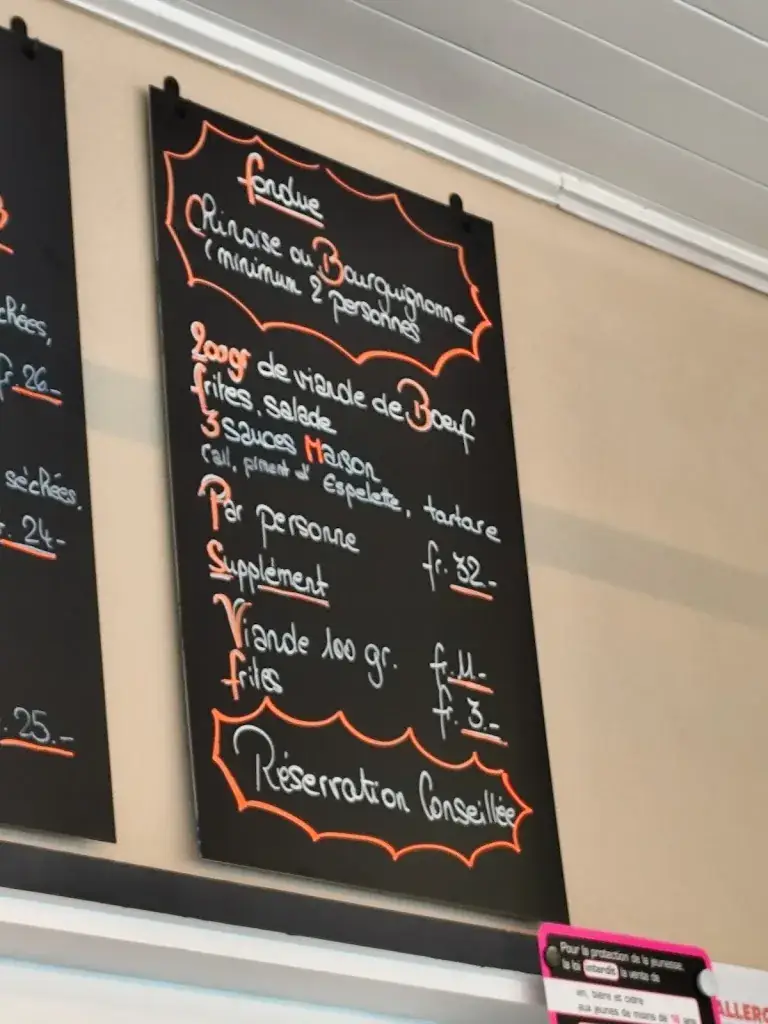 chées,
fr. 26.-
séchées.
fr. 24-
. 25.-
fondue
Chinoise ou Bourguignonne
(minimum 2 personnes
200gr de viande de Boeuf
frites, salade
3 sauces Maison
(ail, piment d'Espelette, tartare
Par personne fr. 32-
Supplément
Viande 100 gr. fr. 11.-
frites fr. 3.-
Réservation Conseillée
Pour la protection de la jeunesse,
la loi interdit la vente de
vin, bière et cidre
aux jeunes de moins de 16 ans
ALLERG